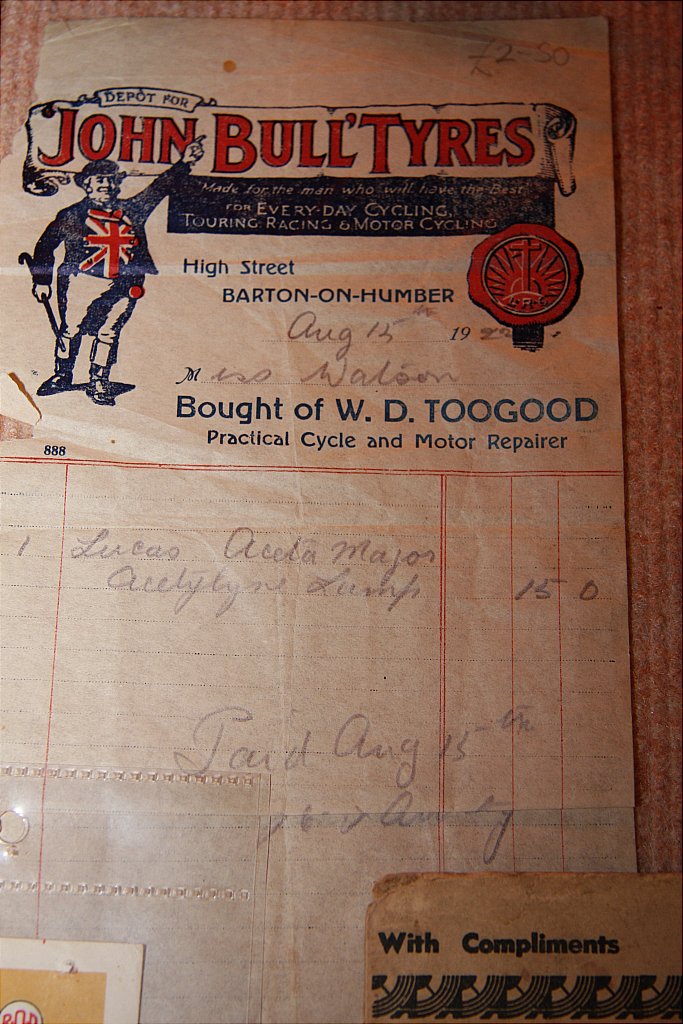 £2-50
DEPÔT FOR
JOHN BULL TYRES
"Made for the man who will have the Best"
FOR EVERY-DAY CYCLING,
TOURING, RACING & MOTOR CYCLING
High Street
BARTON-ON-HUMBER
Aug 15th 1922
Miss Watson
Bought of W. D. TOOGOOD
Practical Cycle and Motor Repairer
888
1 Lucas Aceta Major
Acetylyne Lamp 15 0
Paid Aug 15th
With Compliments